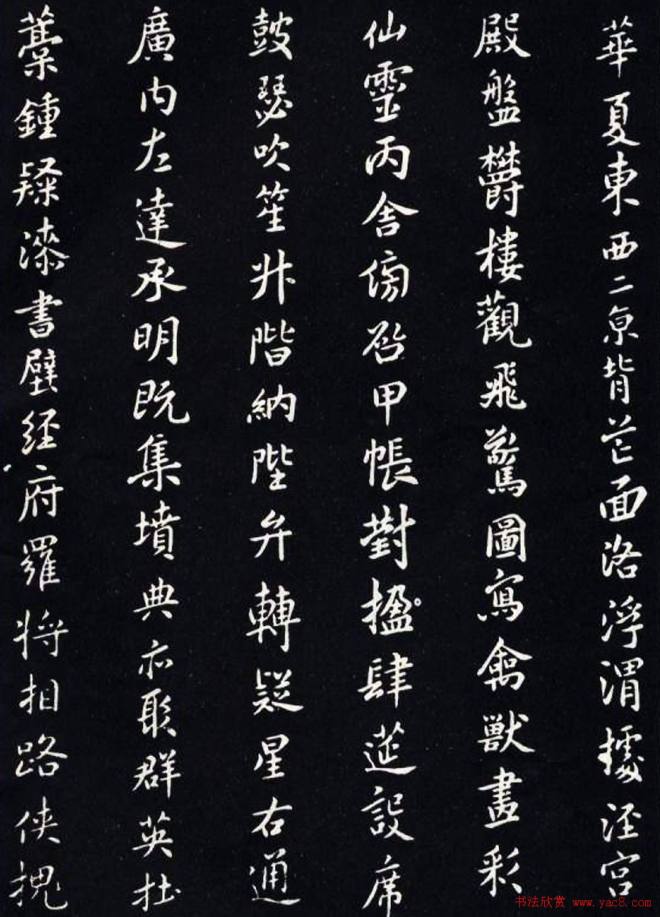 華夏東西二亰背芒面洛浮渭據涇宮
殿盤欝樓觀飛驚圖寫禽獸畫彩
仙靈丙舍傍启甲帳對楹肆筵設席
鼓瑟吹笙升階納陛弁轉疑星右通
廣内左達承明既集墳典亦聚群英杜
藁鍾隸漆書壁經府羅將相路俠槐
书法欣赏 www.yac8.com